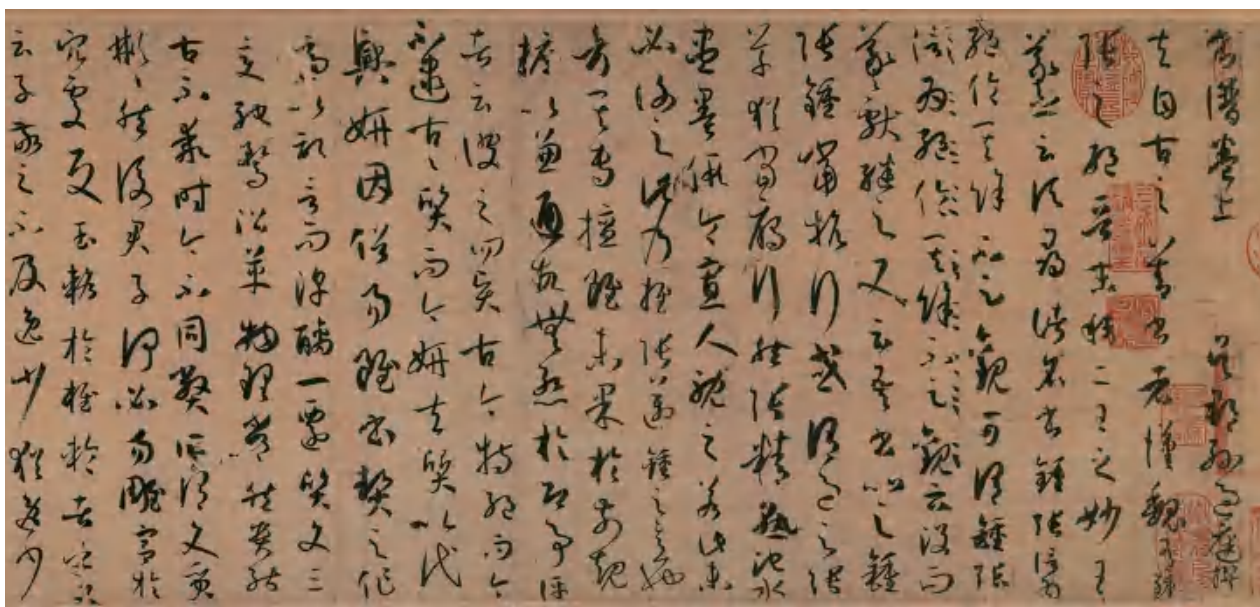 書譜卷上 吳郡孫過庭撰
夫自古之善書者漢魏有鍾
張之絕晉末稱二王之妙王
羲之云頃尋諸名書鍾張信為
絕倫其餘不足觀可謂鍾張
信為絕倫其餘不足觀云沒而
羲獻繼之又云吾書比之鍾
張鍾當抗行或謂過之張
草猶當鴈行然張精熟池水
盡墨假令寡人耽之若此未
必謝之此乃推張邁鍾之意也
考其專擅雖未果於前規
摭以兼通故無慚於即事評
者云彼之四賢古今特絕而今
不逮古古質而今妍夫質以代
興妍因俗易雖書契之作
適以記言而淳醨一遷質文三
變馳騖沿革物理常然貴能
古不乖時今不同弊所謂文質
彬彬然後君子何必易雕宮於
穴處反玉輅於椎輪者乎又
云子敬之不及逸少猶逸少